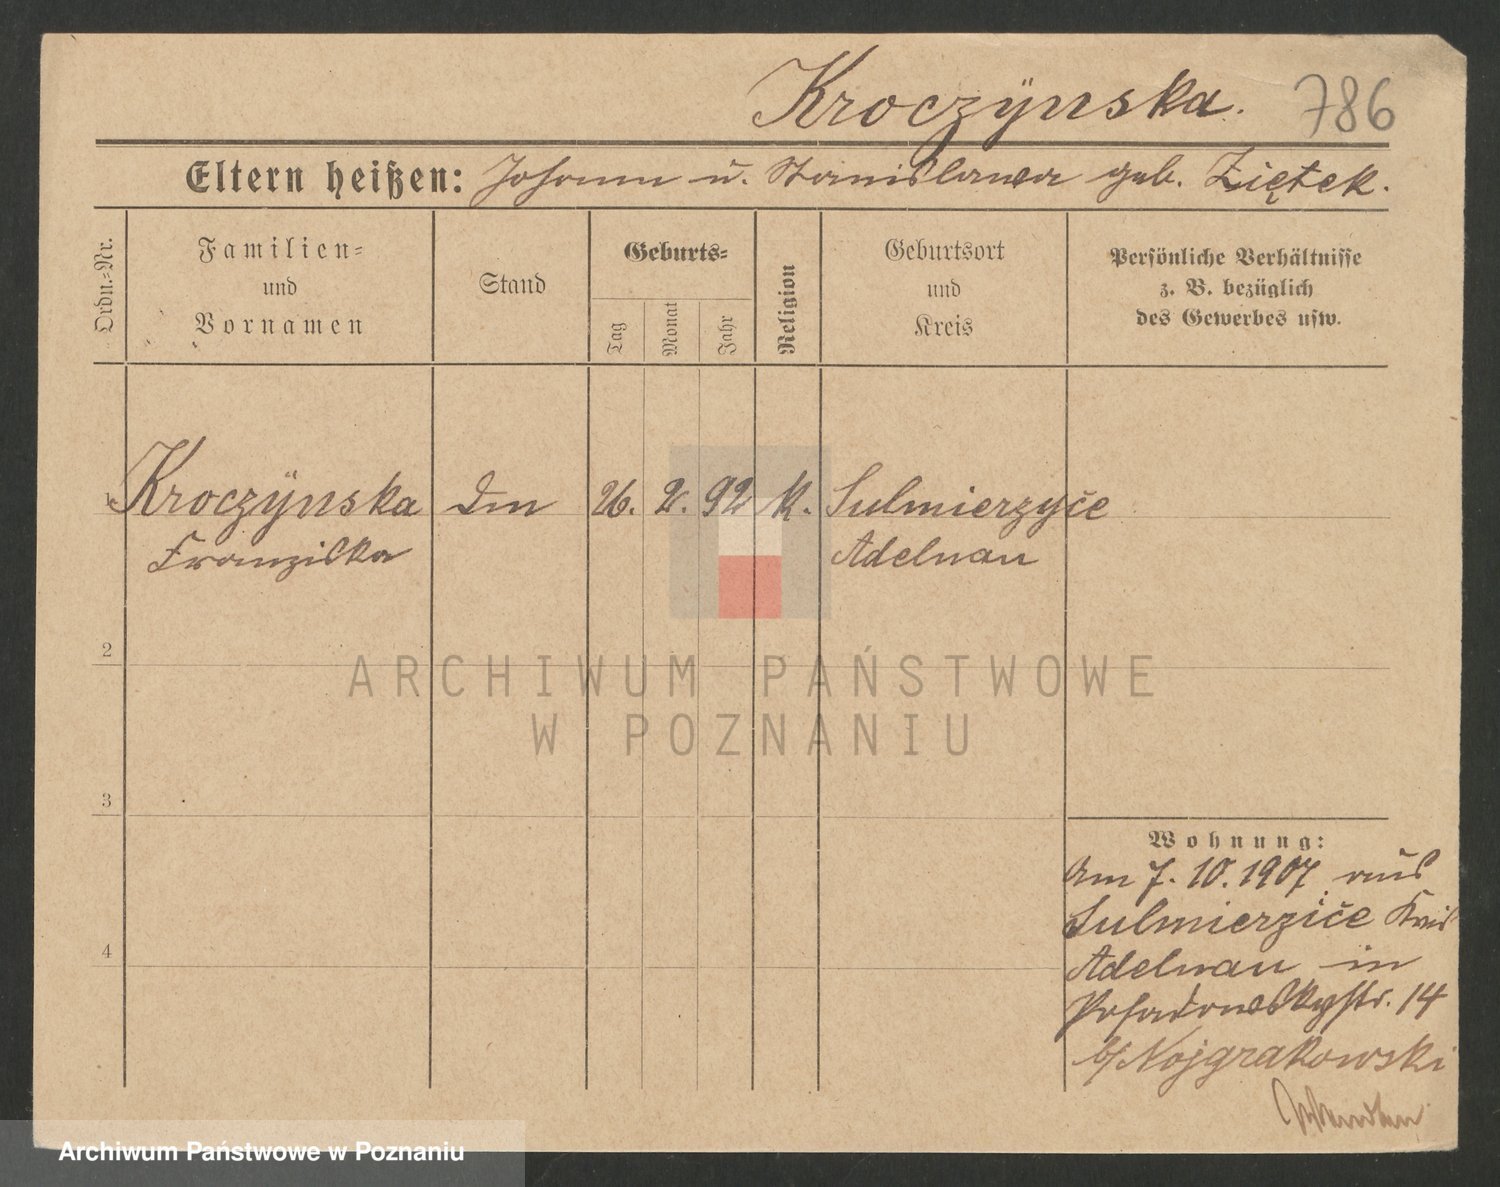 Kroczÿnska. 786
Eltern heißen: Johann u. Stanislawa geb. Ziętek.
Ordn.-Nr.
Familien-
und
Vornamen
Stand
Geburts-
Tag
Monat
Jahr
Religion
Geburtsort
und
Kreis
Persönliche Verhältnisse
z. B. bezüglich
des Gewerbes usw.
1 Kroczÿnska 26. 2. 92 k. Sulmierzyče
Franziska Adelnau
ARCHIWUM PAŃSTWOWE
W POZNANIU
2
3
4
Wohnung:
Am 7. 10. 1907 aus
Sulmierziče Kreis
Adelnau in
Posadowskystr. 14
b/ Nojgrakowski
Archiwum Państwowe w Poznaniu